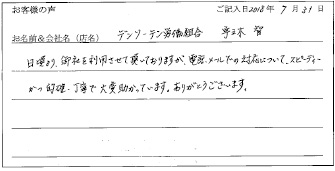 お客様の声 ご記入日2018年 7月31日
お名前&会社名(店名) デンソーテン労働組合 智
日頃より、御社を利用させて頂いておりますが、電話、メールでの対応について、スピーディー
かつ的確、丁寧で大変助かっています。ありがとうございます。